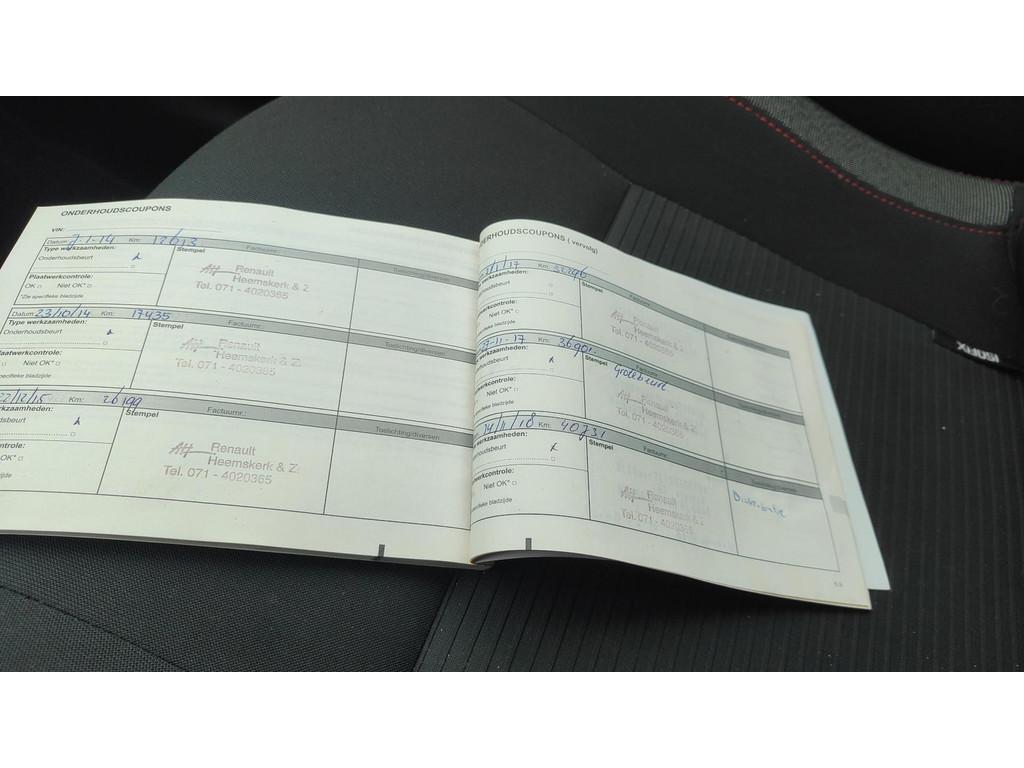 ONDERHOUDSCOUPONS
VIN:
Datum 7-1-14 Km: 12613 Factuurnr.:
Type werkzaamheden: Stempel Toelichting/diversen
Onderhoudsbeurt
Plaatwerkcontrole:
OK Niet OK*
*Zie specifieke bladzijde
Renault
Heemskerk & Z
Tel. 071 - 4020365
Datum 23/10/14 Km: 17435 Factuurnr.:
Type werkzaamheden: Stempel Toelichting/diversen
Onderhoudsbeurt
laatwerkcontrole:
Niet OK*
specifieke bladzijde
Renault
Heemskerk & Z.
Tel. 071 - 4020365
22/12/15 Km: 26199 Factuurnr.:
rkzaamheden: Stempel Toelichting/diversen
dsbeurt
ntrole:
Niet OK*
bladzijde
Renault
Heemskerk & Z.
Tel. 071 - 4020365
ERHOUDSCOUPONS ( vervolg)
/17 Km: Factuurnr.:
werkzaamheden: Stempel
houdsbeurt
kcontrole:
Niet OK*
ifieke bladzijde
Renault
Heemskerk & Z
Tel. 071 - 4020365
-11-17 Km: 36901 Factuurnr.:
werkzaamheden: Stempel
houdsbeurt Grote beurt
werkcontrole:
Niet OK*
specifieke bladzijde
Renault
Heemskerk &
Tel. 071 - 4020365
14/11/18 Km. 40731 Factuurnr.:
werkzaamheden: Stempel
houdsbeurt
werkcontrole:
Niet OK*
specifieke bladzijde
Distributie
Renault
Heemskerk & Z
Tel. 071 - 4020365
ISOFIX